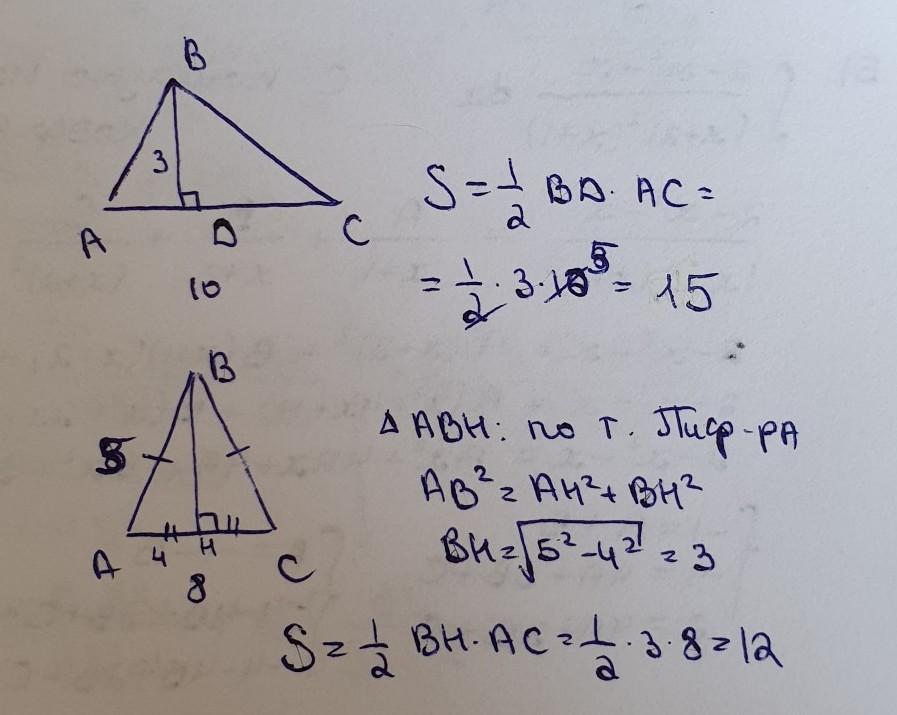 B
3
A D C
10
S = 1/2 BD · AC =
= 1/2 · 3 · 10 5 = 15
B
5
A 4 H C
8
Δ ABH: по т. Пиф-рА
AB² = AH² + BH²
BH = √5² - 4² = 3
S = 1/2 BH · AC = 1/2 · 3 · 8 = 12